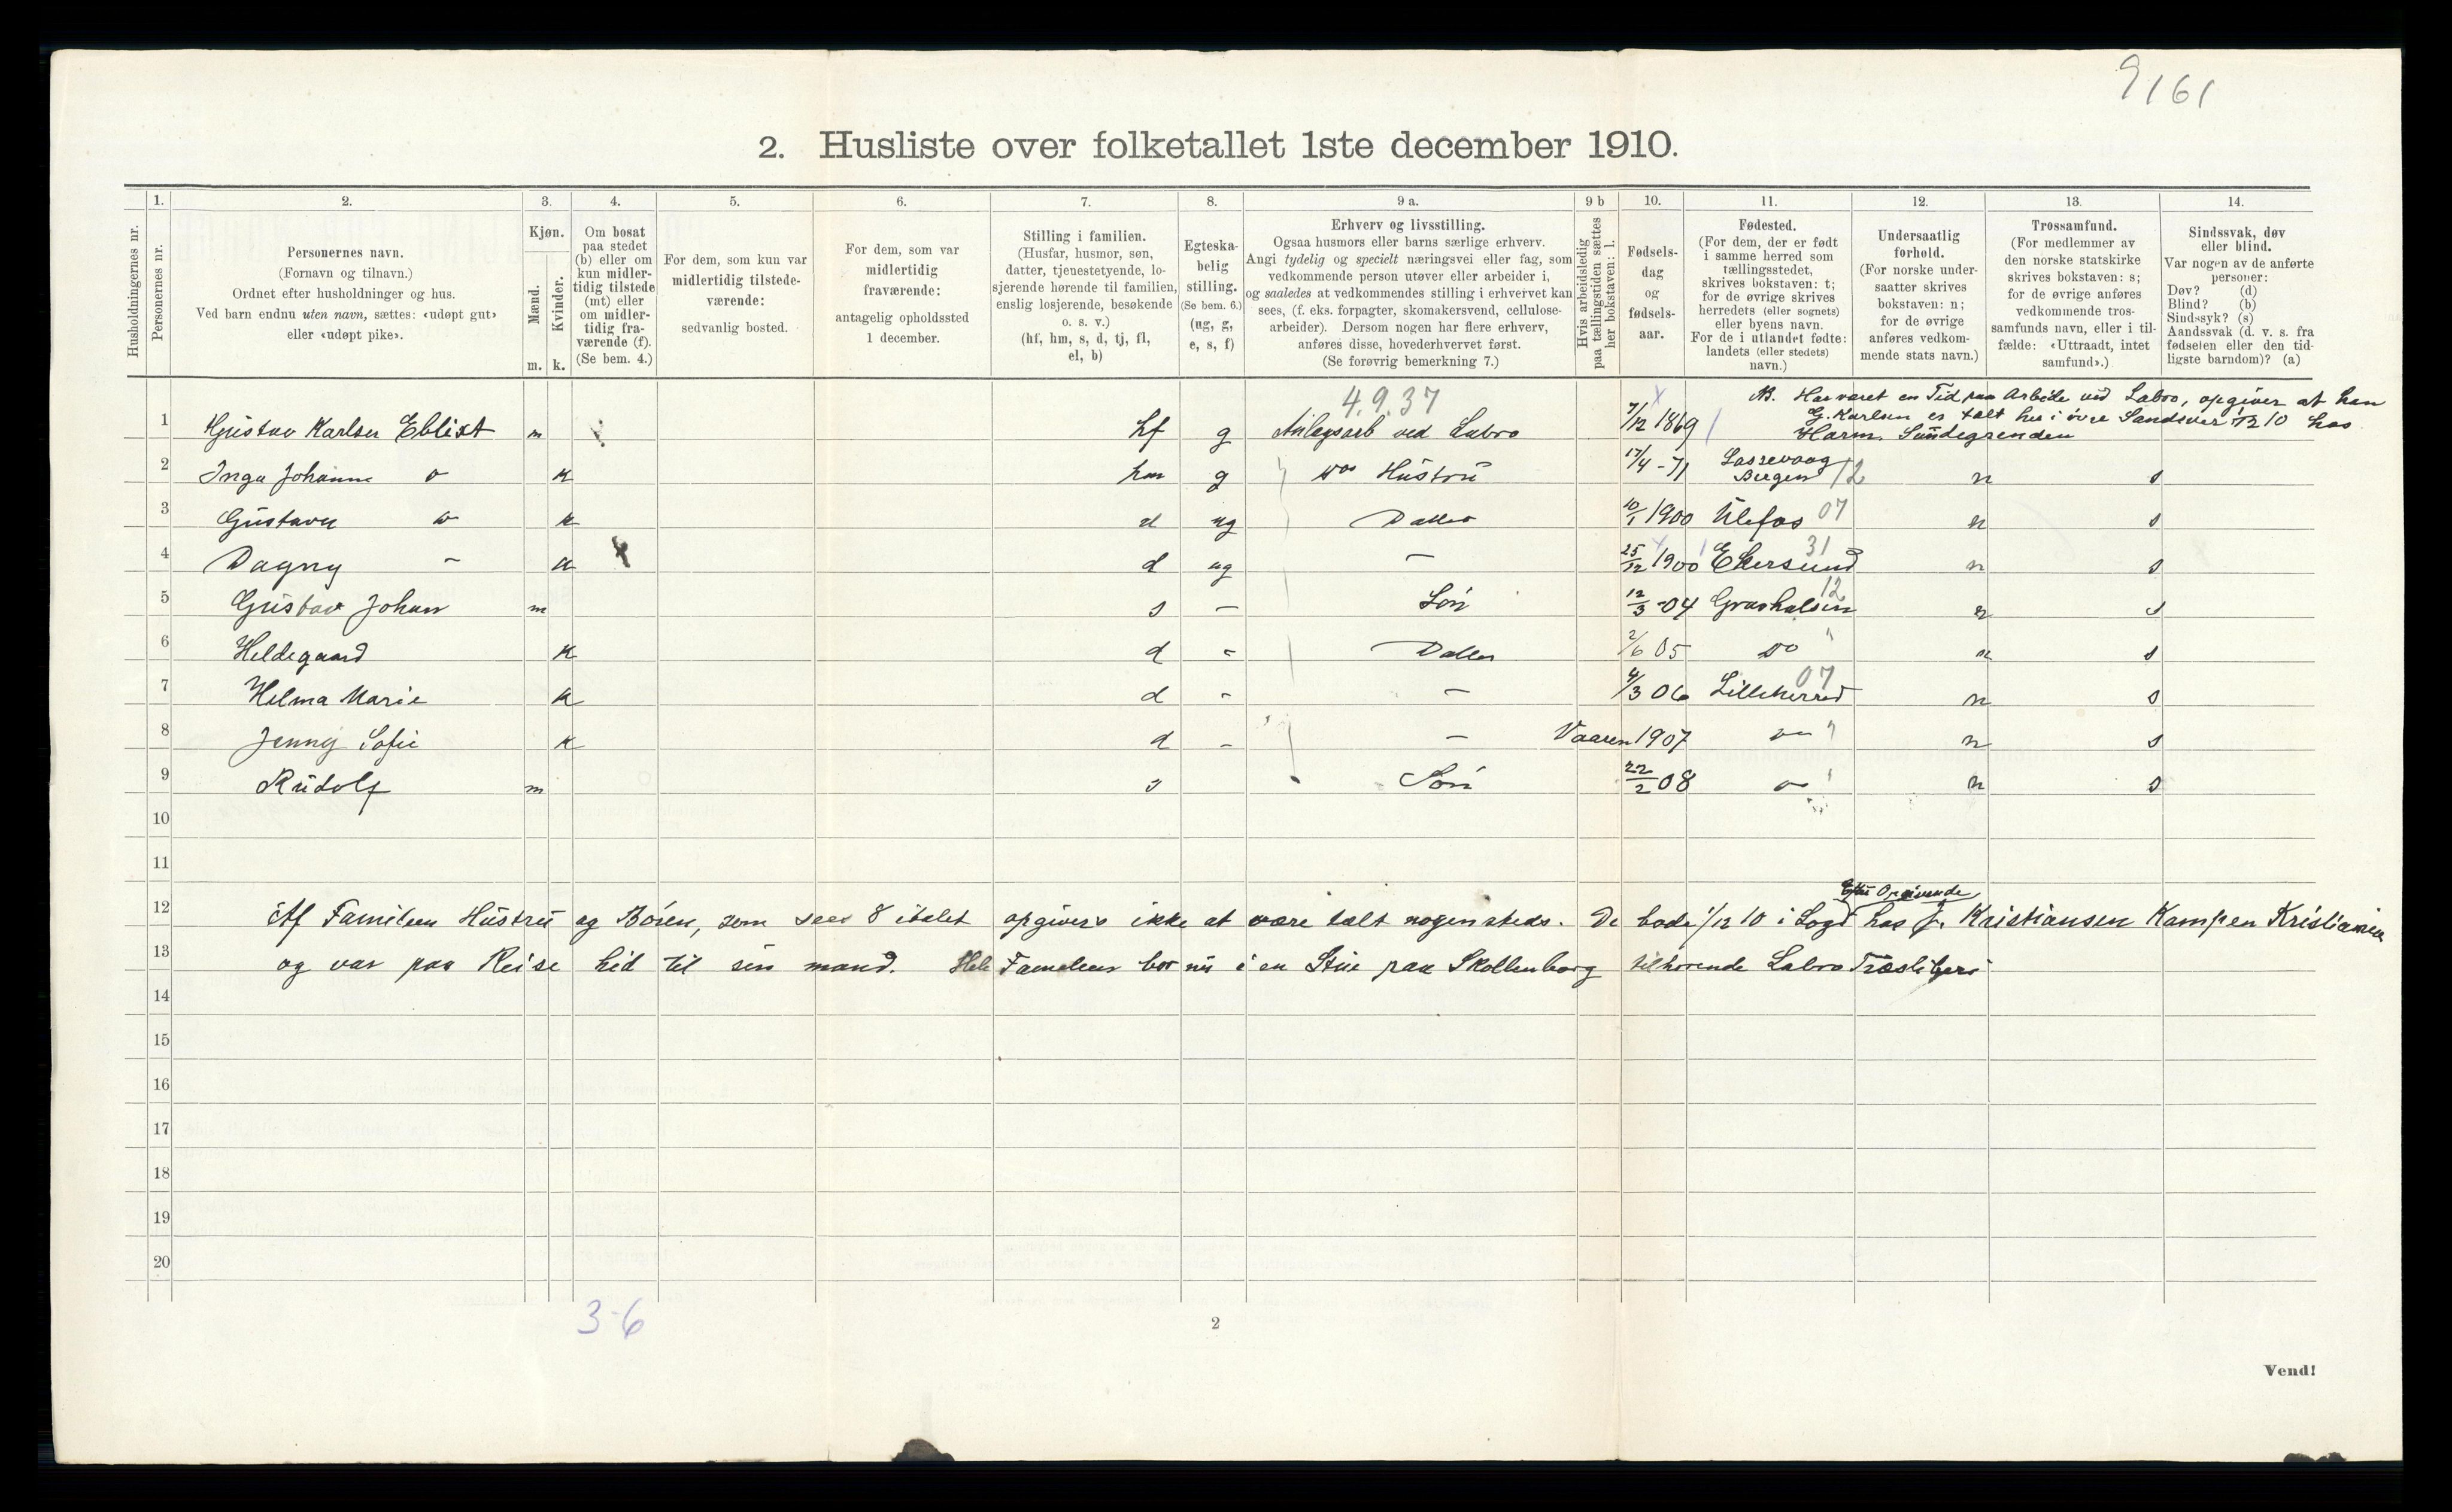 9161
2. Husliste over folketallet 1ste december 1910.
Husholdningernes nr.
1. Personernes nr.
2. Personernes navn.
(Fornavn og tilnavn.)
Ordnet efter husholdninger og hus.
Ved barn endnu uten navn, sættes: «udøpt gut»
eller «udøpt pike».
3. Kjøn.
Mænd. m.
Kvinder. k.
4. Om bosat
paa stedet
(b) eller om
kun midler-
tidig tilstede
(mt) eller
om midler-
tidig fra-
værende (f).
(Se bem. 4.)
5. For dem, som kun var
midlertidig tilstede-
værende:
sedvanlig bosted.
6. For dem, som var
midlertidig
fraværende:
antagelig opholdssted
1 december.
7. Stilling i familien.
(Husfar, husmor, søn,
datter, tjenestetyende, lo-
sjerende hørende til familien,
enslig losjerende, besøkende
o. s. v.)
(hf, hm, s, d, tj, fl,
el, b)
8. Egteska-
belig
stilling.
(Se bem. 6.)
(ug, g,
e, s, f)
9 a. Erhverv og livsstilling.
Ogsaa husmors eller barns særlige erhverv.
Angi tydelig og specielt næringsvei eller fag, som
vedkommende person utøver eller arbeider i,
og saaledes at vedkommendes stilling i erhvervet kan
sees, (f. eks. forpagter, skomakersvend, cellulose-
arbeider). Dersom nogen har flere erhverv,
anføres disse, hovederhvervet først.
(Se forøvrig bemerkning 7.)
9 b Hvis arbeidsledig
paa tællingstiden sættes
her bokstaven: l.
10. Fødsels-
dag
og
fødsels-
aar.
11. Fødested.
(For dem, der er født
i samme herred som
tællingsstedet,
skrives bokstaven: t;
for de øvrige skrives
herredets (eller sognets)
eller byens navn.
For de i utlandet fødte:
landets (eller stedets)
navn.)
12. Undersaatlig
forhold.
(For norske under-
saatter skrives
bokstaven: n;
for de øvrige
anføres vedkom-
mende stats navn.)
13. Trossamfund.
(For medlemmer av
den norske statskirke
skrives bokstaven: s;
for de øvrige anføres
vedkommende tros-
samfunds navn, eller i til-
fælde: «Uttraadt, intet
samfund».)
14. Sindssvak, døv
eller blind.
Var nogen av de anførte
personer:
Døv? (d)
Blind? (b)
Sindssyk? (s)
Aandssvak (d. v. s. fra
fødselen eller den tid-
ligste barndom)? (a)
4.9.37
NB. Har været en Tid paa Arbeide ved Labro, opgiver at han
G. Karlsen er talt her i øvre Sandsver 1/12 10 hos
Harm. Sundegrenden
1 Gustav Karlsen Eblixt m hf g Anlegsarb ved Labro 7/12 1869
2 Inga Johanne k hm g Hustru 17/4 - 71 Laxevaag Bergen 12 n s
3 Gustava k d ug Datter 10/1 1900 Ulefos 07 n s
4 Dagny - k d ug - 25/12 1900 Ekersund 31 n s
5 Gustav Johan m s - Søn 12/3 - 04 12 n s
6 Hildegaard k d - Datter 2/6 05 Do n s
7 Hilma Marie k d - - 4/3 06 Lilleherred 07 n s
8 Jenny Sofie k d - - Vaaren 1907 n s
9 Rudolf m s Søn 22/2 08 n s
10
11
12 Af Familien Hustru og Børen, som sees 8 italet opgivers ikke at være talt nogensteds. De bode 1/12 10 i Logi hos Kristiansen Kampen Kristiania
13 og var paa Reise hid til sin mand. Hele Familien bor nu i en Stue paa Skollenborg tilhørende Labro Træsliberi
14
15
16
17
18
19
20
3-6
2
Vend!